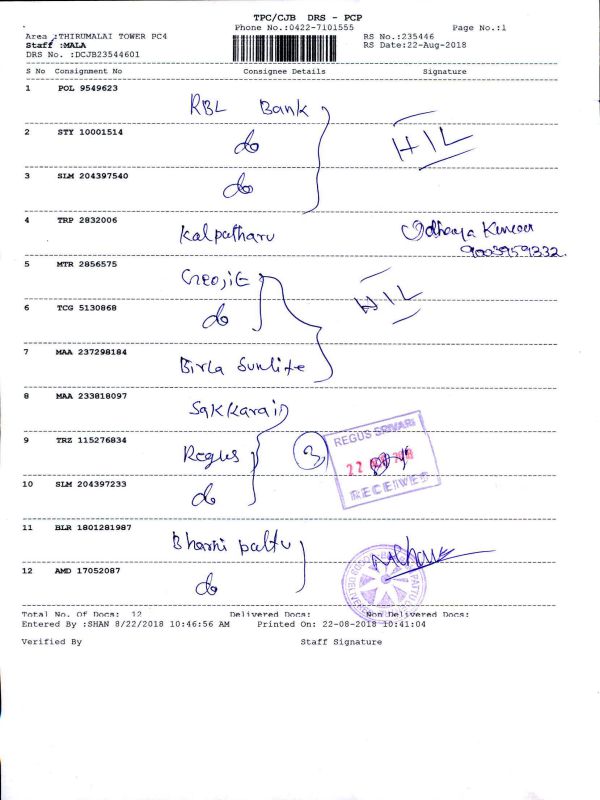 TPC/CJB DRS - PCP
Phone No.:0422-7101555 Page No.:1
Area :THIRUMALAI TOWER PC4 RS No.:235446
Staff :MALA RS Date:22-Aug-2018
DRS No. :DCJB23544601
S No Consignment No Consignee Details Signature
1 POL 9549623 RBL Bank
2 STY 10001514 do HIL
3 SLM 204397540 do
4 TRP 2832006 Kalpatharu
9003959332
5 MTR 2856575 Geojit
6 TCG 5130868 do HIL
7 MAA 237298184 Birla Sunlife
8 MAA 233818097 Sakkarain
9 TRZ 115276834 Regus 3 REGUS SRIVARI
22 2018
10 SLM 204397233 do RECEIVED
11 BLR 1801281987 Bharni pattu
12 AMD 17052087 do
Total No. Of Docs: 12 Delivered Docs: Non Delivered Docs:
Entered By :SHAN 8/22/2018 10:46:56 AM Printed On: 22-08-2018 10:41:04
Verified By Staff Signature